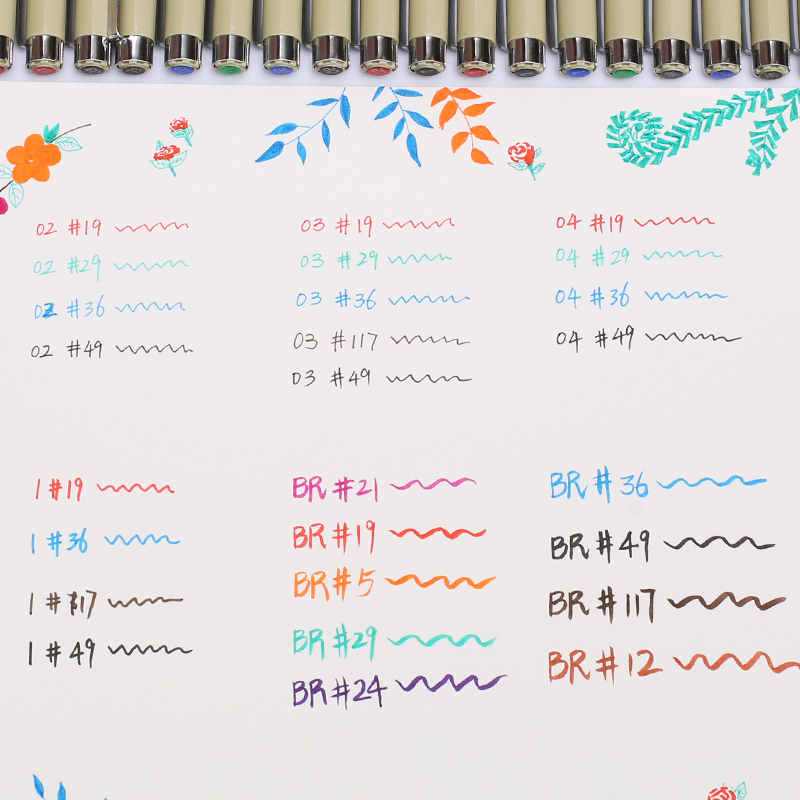 02 #19
02 #29
02 #36
02 #49
03 #19
03 #29
03 #36
03 #117
03 #49
04 #19
04 #29
04 #36
04 #49
1 #19
1 #36
1 #117
1 #49
BR #21
BR #19
BR #5
BR #29
BR #24
BR #36
BR #49
BR #117
BR #12